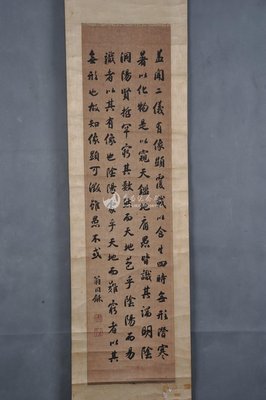 蓋聞二儀有像顯覆載以含生四時無形潛寒
暑以化物是以窺天鑑地庸愚皆識其端明陰
洞陽賢哲罕窮其數然而天地苞乎陰陽而易
識者以其有像也陰陽處乎天地而難窮者以其
無形也故知像顯可徵雖愚不惑
翁同龢